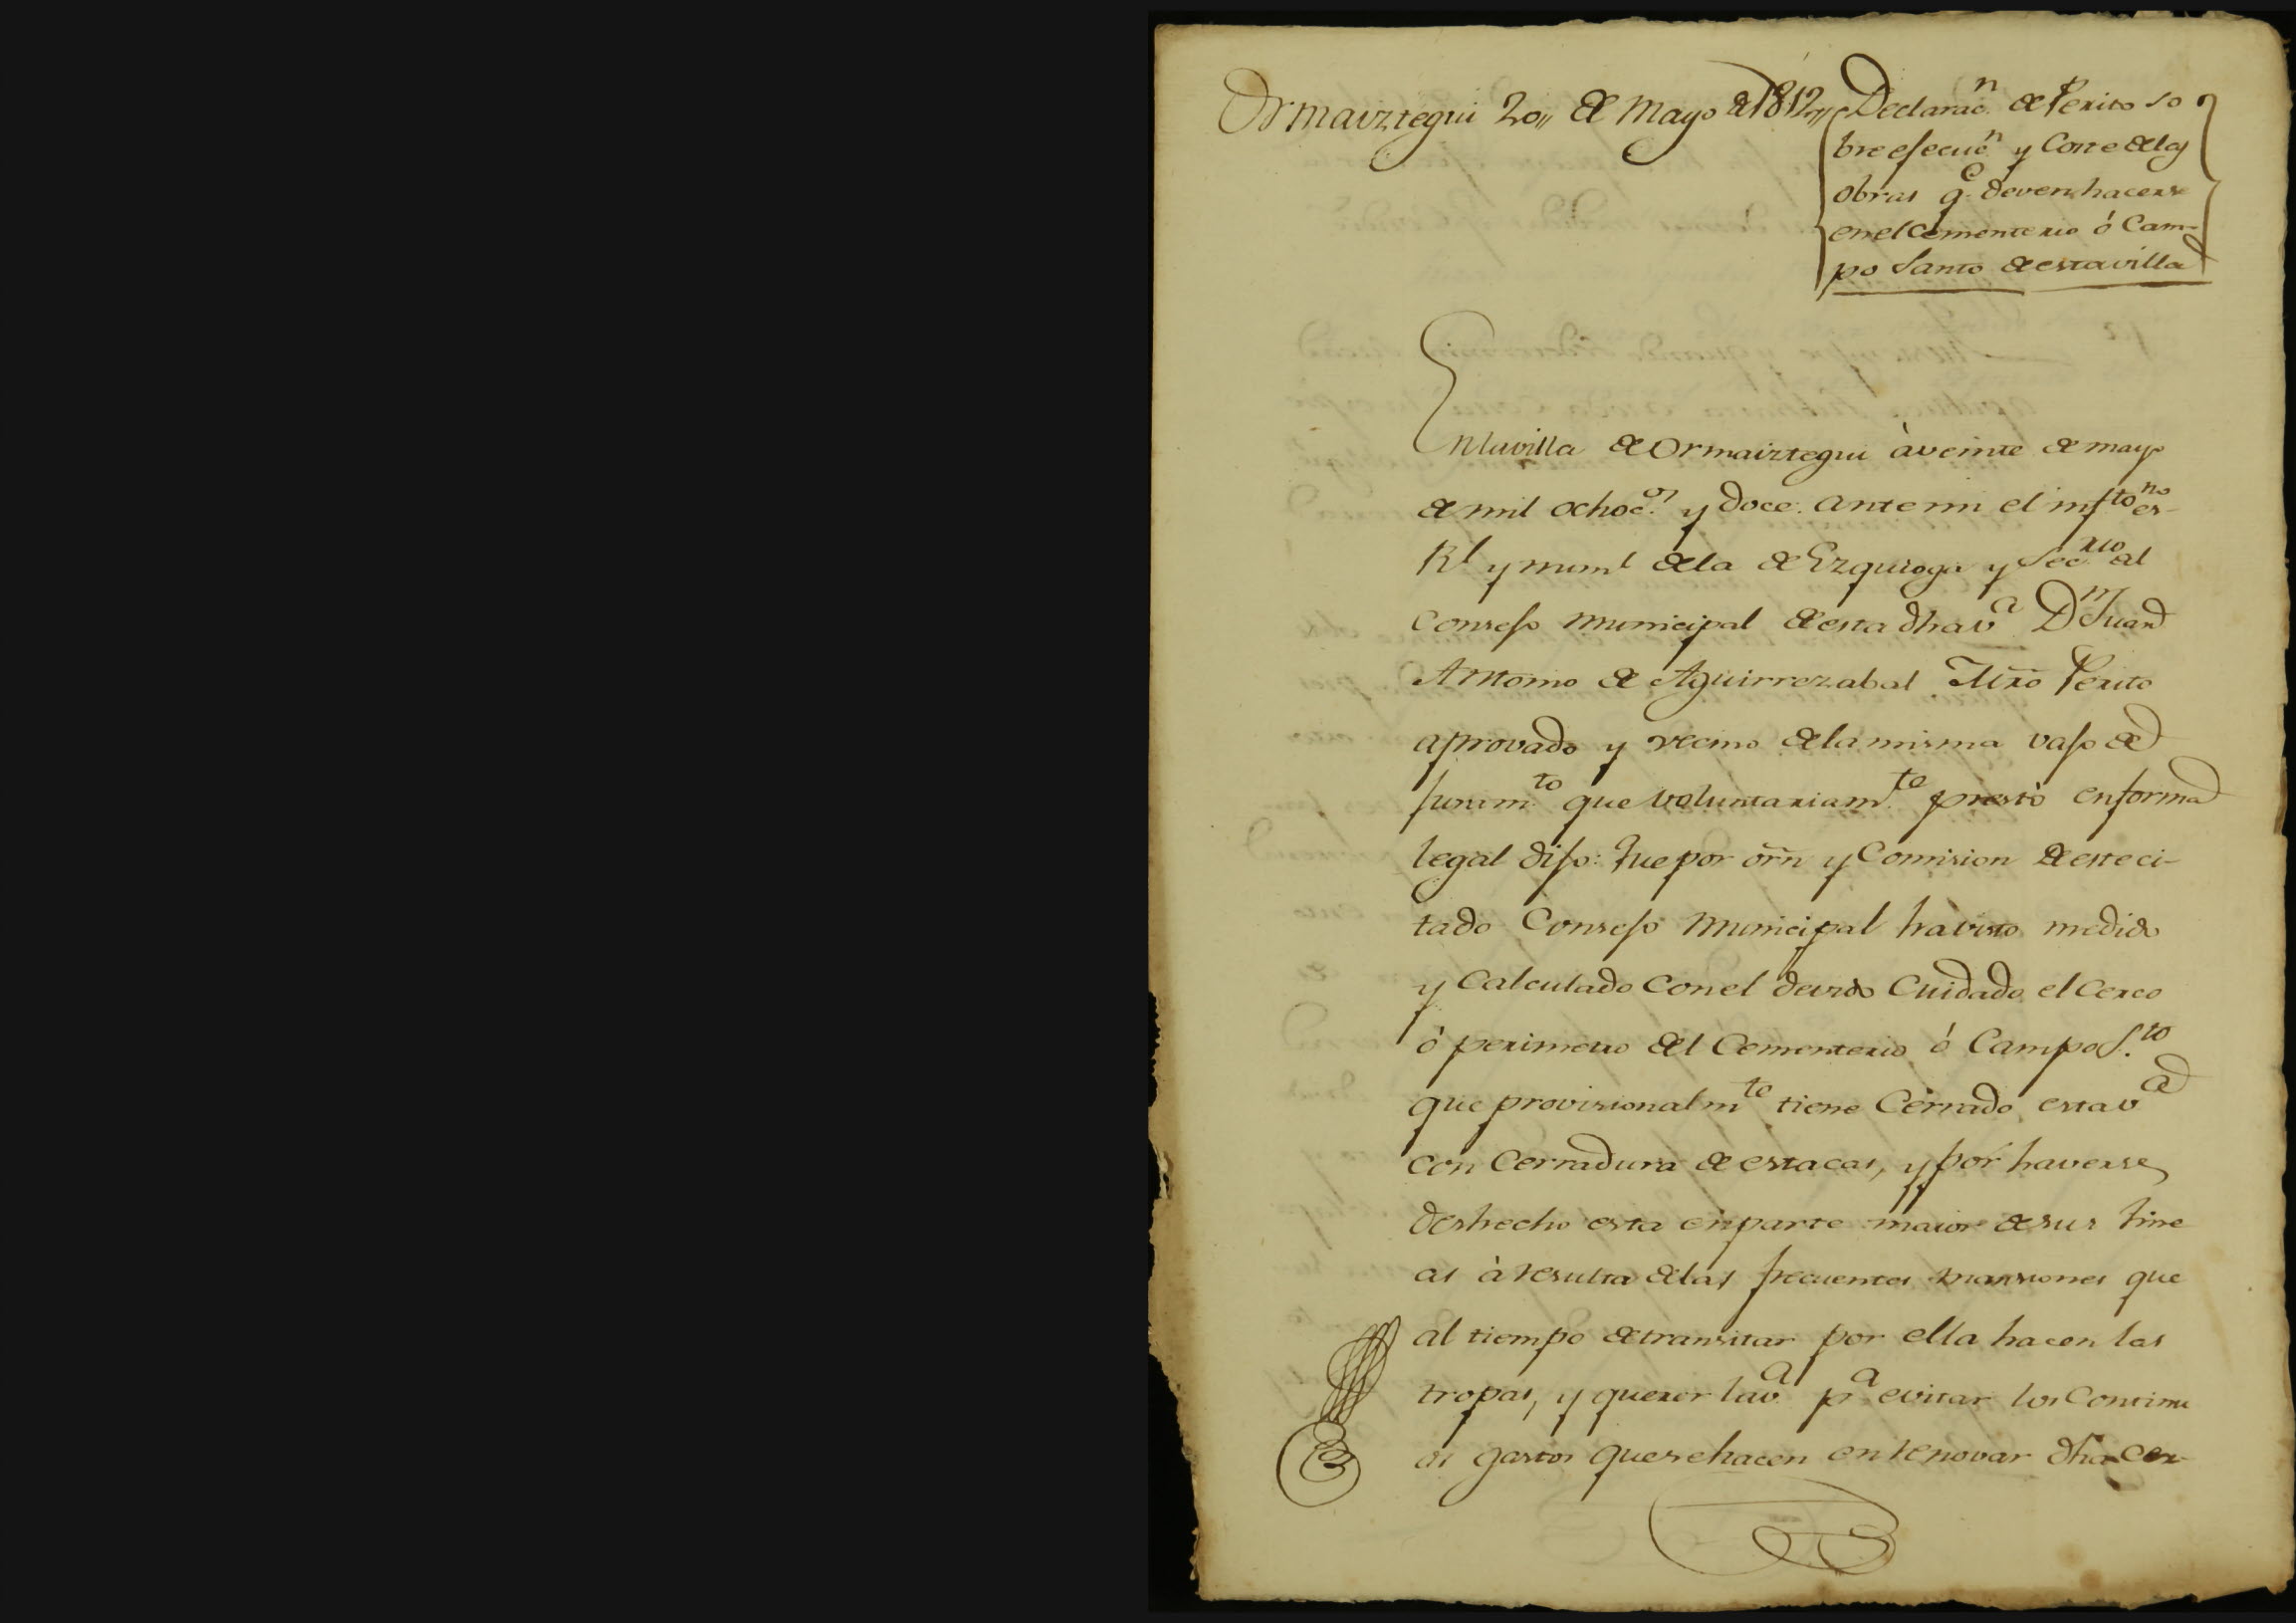 Ormaiztegui 20,, de Mayo de 1812,,
Declarac.n de Perito so
bre ejecuc.n y Coste de las
obras q.e deven hacerse
en el Cementerio ó Cam-
po Santo de esta villa
En la villa de Ormaiztegui à veinte de mayo
de mil ochoc.os y doce: ante mi el infto es.no
Rl y numl de la de Ezquioga y Sec.rio del
Consejo Municipal de esta dha v.a Dn Juan
Antonio de Aguirrezabal Mro Perito
aprovado y vecino de la misma vajo de
juram.to que voluntariam.te prestò en forma
legal dijo: Que por orn y Comision de este ci-
tado Consejo Municipal ha visto medido
y Calculado con el devido Cuidado el Cerco
ò perimetro del Cementerio ó Campo S.to
que provisionalm.te tiene Cerrado esta v.a
con Cerradura de estacas, y por haverse
deshecho esta en parte maior de sus line
as à resulta de las frecuentes mansiones que
al tiempo de transitar por ella hacen las
tropas, y querer la v.a p.a evitar los Continu
os gastos que se hacen en renovar dha Cer-